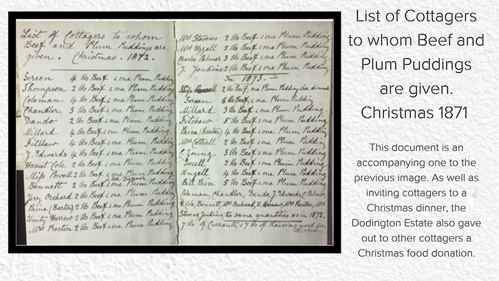 List of Cottagers to whom
Beef and Plum Puddings are
given. Christmas. 1872.
Screen 4 lbs Beef & one Plum Pudding
Thompson 2 lbs Beef & one Plum Pudding
Coleman 4 lbs Beef & one Plum Pudding
Chandler 3 lbs Beef & one Plum Pudding
Dando 2 lbs Beef & one Plum Pudding
Millard 4 lbs Beef & one Plum Pudding
4 lbs Beef & one Plum Pudding
J. Edwards 4 lbs Beef & one Plum Pudding
Harriet Cole 2 lbs Beef & one Plum Pudding
Miss Powell 2 lbs Beef & one Plum Pudding
Bennett 2 lbs Beef & one Plum Pudding
Orchard 2 lbs Beef & one Plum Pudding
Paine (Barton) 2 lbs Beef & one Plum Pudding
Harris 2 lbs Beef & one Plum Pudding
Mrs Preston 2 lbs Beef & one Plum Pudding
Mrs 2 lbs Beef & one Plum Pudding
Mrs 2 lbs Beef & one Plum Pudding
Charles 3 lbs Beef & one Plum Pudding
J. Jenkins 2 lbs Beef & one Plum Pudding
In 1873.
2 lbs Beef, one Plum Pudding
Screen 6 lbs Beef & one Plum Pudding
Millard 3 lbs Beef & one Plum Pudding
5 lbs Beef & one Plum Pudding
Paine (Barton) 4 lbs Beef & one Plum Pudding
Mrs 2 lbs Beef & one Plum Pudding
C. Young 3 lbs Beef & one Plum Pudding
Scull 2 lbs Beef & one Plum Pudding
4 lbs Beef & one Plum Pudding
3 lbs Beef & one Plum Pudding
Coleman, Chandler, Dando, J. Edwards,
Cole, Bennett, Orchard, Harris, Mrs Preston, Mrs
Jenkins the same quantities as in 1872.
7 lbs of Currants & 7 lbs of Raisins used for
List of Cottagers
to whom Beef and
Plum Puddings
are given.
Christmas 1871
This document is an
accompanying one to the
previous image. As well as
inviting cottagers to a
Christmas dinner, the
Dodington Estate also gave
out to other cottagers a
Christmas food donation.